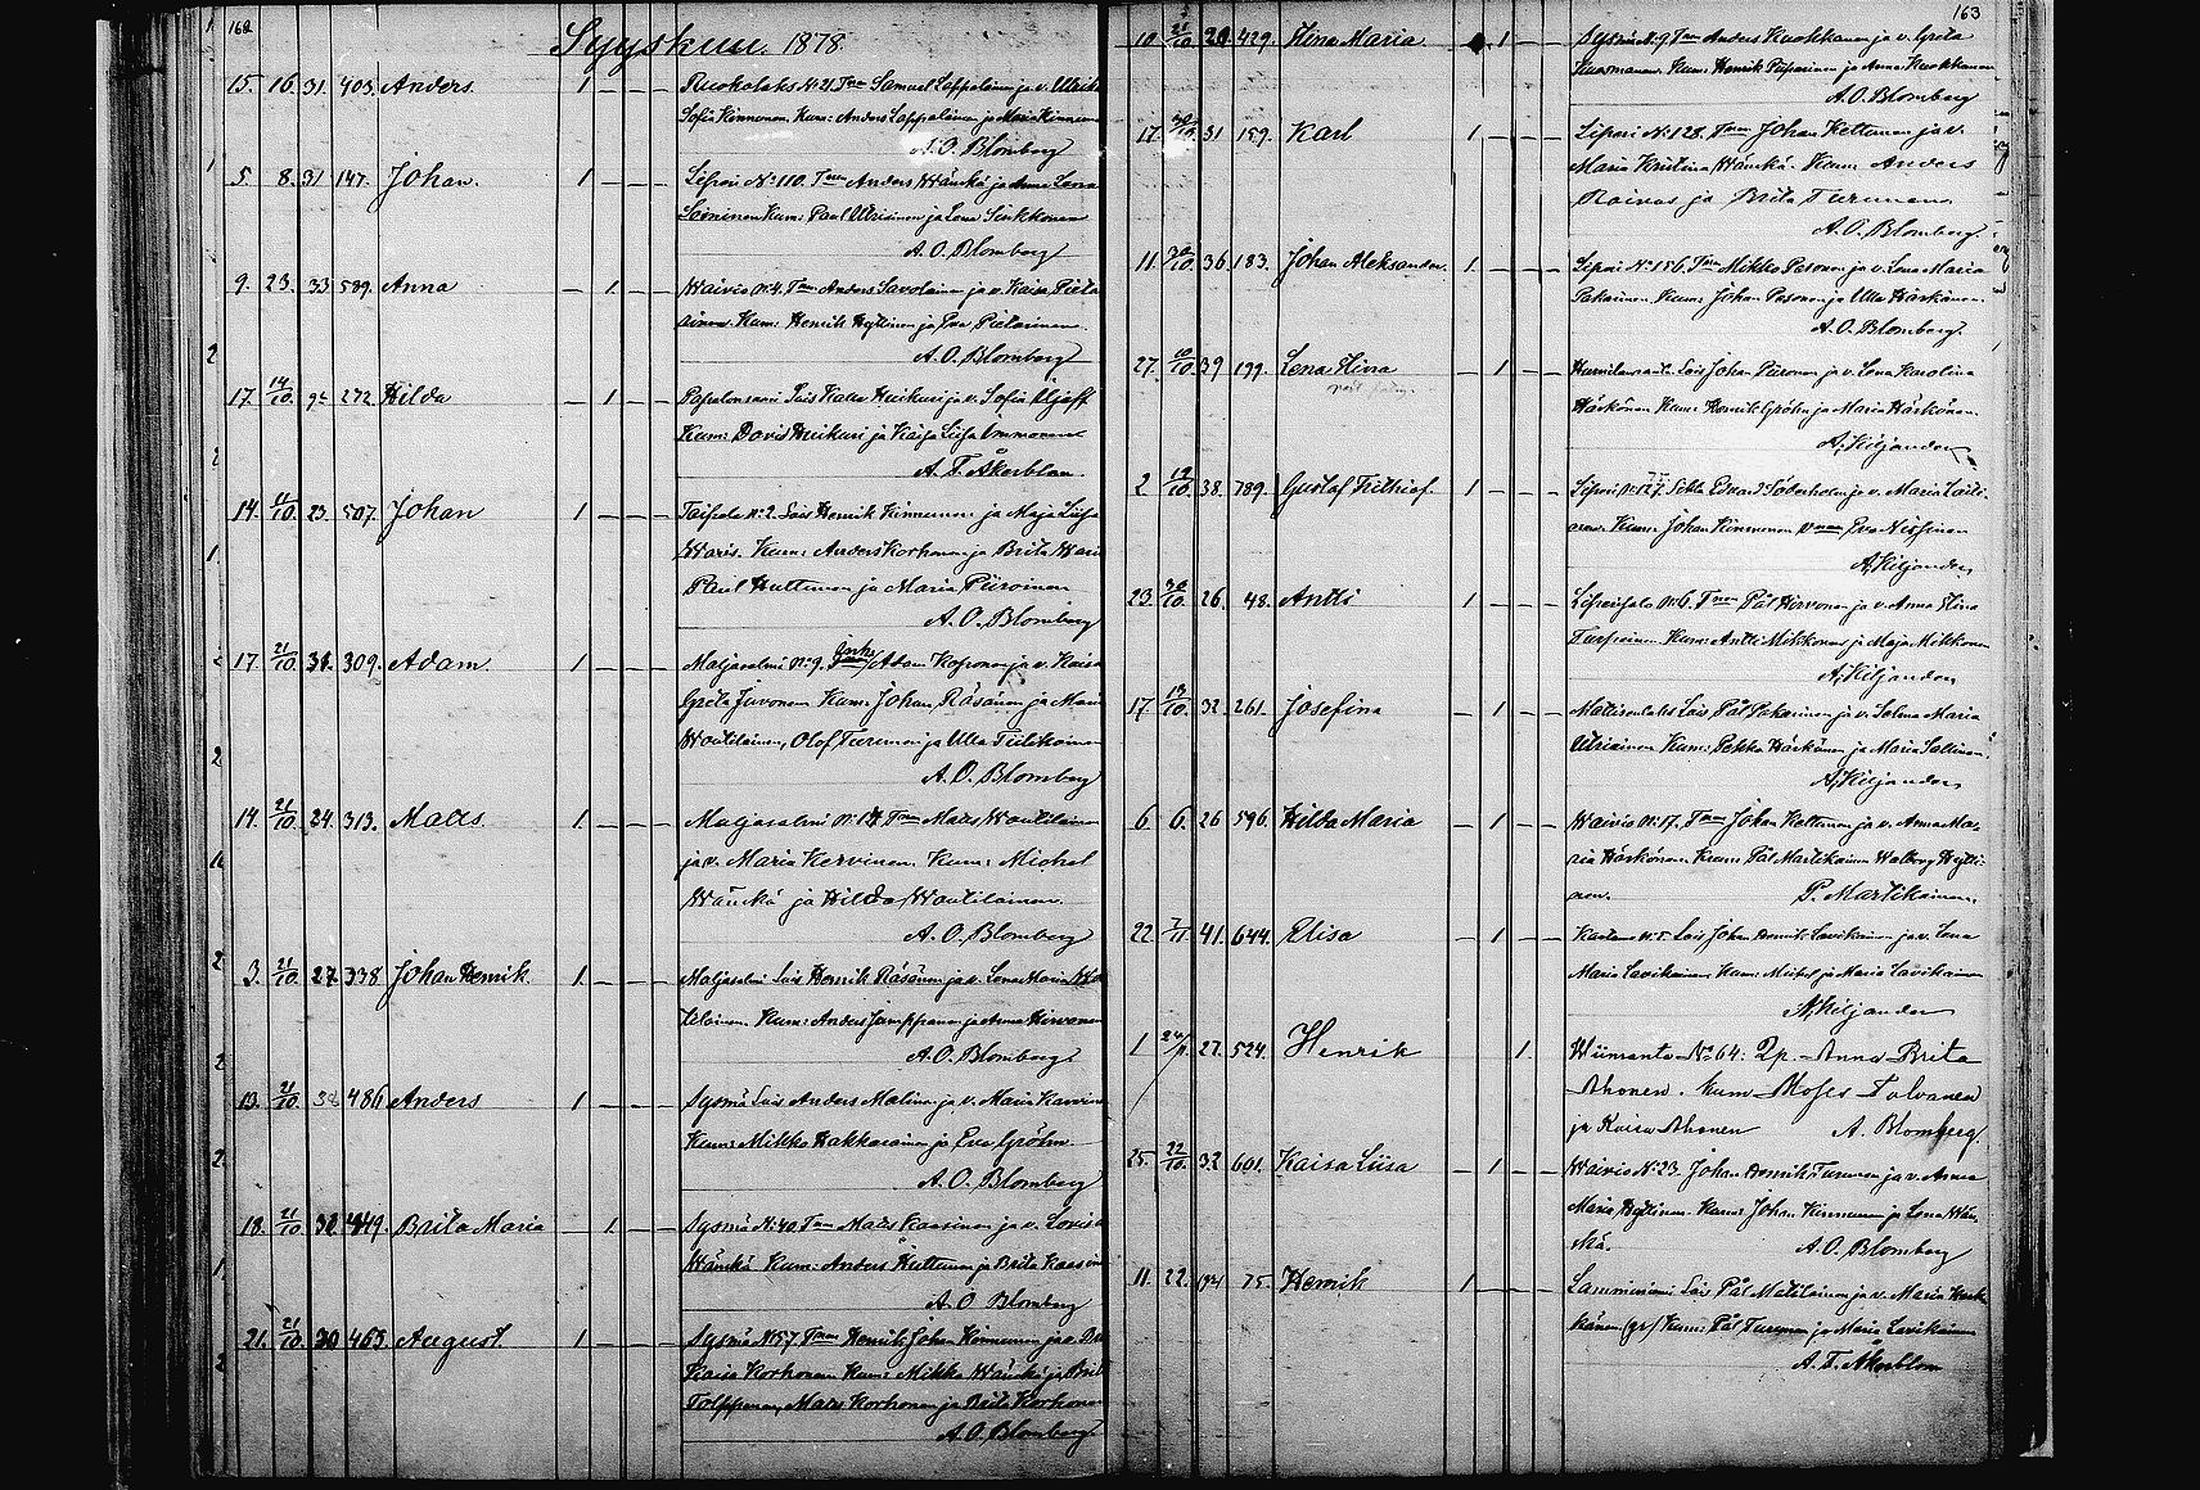 162
Syyskuu. 1878.
15. 16. 31. 403. Anders. 1 — — — Ruokolaks No 21. Tren Samuel Lappalainen ja v. Ulrik
Sofia Kinnunen. Kum: Anders Lappalainen ja Maria Kinnunen
A. O. Blomberg
5. 8. 31 147. Johan. 1 — — — Liperi No 110. Tren Anders Wänskä ja Anna Lena
Soininen Kum: Paul Utriainen ja Lena Sinkkonen
A. O. Blomberg
9. 23. 33 589. Anna — 1. — — Waivio No 4. Tren Anders Savolainen ja v. Kaisa Pieta
rinen. Kum: Henrik Hyttinen ja Eva Pietarinen.
A. O. Blomberg
17. 14/10. 272 Hilda — 1 — — Papelonsaari Lois Kalle Huikuri ja v. Sofia
Kum: David Huikuri ja Kaisa Liisa Immonen
A. T. Åkerblom.
14. 11/10. 23. 507. Johan 1 — — — Taipale No 2. Lois Henrik Kinnunen ja Maja Liisa
Waris. Kum: Anders Korhonen ja Brita Wari
Paul Huttunen ja Maria Piiroinen
A. O. Blomberg
17. 21/10. 31. 309. Adam 1 — — — Maljasalmi No 9. Adam Koponen ja v. Kaisa
Greta Juvonen Kum: Johan Räsänen ja Maria
Woutilainen, Olof Turunen ja Ulla Tiilikainen
A. O. Blomberg
14. 21/10. 24. 313. Mats. 1. — — — Maljasalmi No 14 Tren Mats Woutilainen
ja v. Maria Kervinen. Kum: Michel
Wänskä ja Hilda Woutilainen.
A. O. Blomberg
3. 21/10. 27. 338 Johan Henrik. 1. — — — Maljasalmi Lois Henrik Räsänen ja v. Lena Maria Wou
tilainen. Kum: Anders Jumppanen ja Anna Hirvonen
A. O. Blomberg
13. 21/10. 486 Anders 1 — — — Sysmä Lois Anders Malinen ja v. Maria
Kum: Mikko Hakkarainen ja Eva Gröhn.
A. O. Blomberg
18. 21/10. 449. Brita Maria — 1. — — Sysmä No 40. Tren Mats Kaasinen ja v. Lovisa
Wänskä Kum: Anders Huttunen ja Brita Kaasinen
A. O Blomberg
21. 21/10. 30 465. August. 1 — — — Sysmä No 57. Tren Henrik Johan Kinnunen ja v.
Kaisa Korhonen Kum: Mikko Wänskä ja Brit
Tolppanen, Mats Korhonen ja Brita Korhonen
A. O. Blomberg
163
10 21/10 429. Hina Maria. 1 — — Sysmä No 9. Tren Anders Kuokkanen ja v. Greta
Kuosmanen. Kum: Henrik Piiparinen ja Anna Kuokkanen
A. O. Blomberg
17. 30/10. 31 159. Karl 1 — — — Liperi No 128. Tren Johan Kettunen ja v.
Maria Kristina Wänskä. Kum: Anders
Roivas ja Brita Turunen.
A. O. Blomberg.
11. 30/10. 36. 183. Johan Aleksander. 1. — — — Liperi No 156. Tren Mikko Pesonen ja v. Lena Maria
Pakarinen. Kum: Johan Pesonen ja Ulla Härkönen.
A. O. Blomberg.
27. 10/10. 39 199. Lena Hina — 1 — — Lois Johan Piironen ja v. Lena Karolina
Härkönen Kum: Henrik Gröhn ja Maria Härkönen.
A. Kiljander
2 19/10. 38. 789. Gustaf Frithiof. 1 — — — Liperi Edvard Söderholm ja v. Maria
Kum: Johan Kinnunen Eva Nissinen
A. Kiljander
23. 30/10. 26. 48. Antti 1 — — — Liperinsalo No 6. Tren Pål Hirvonen ja v. Anna Hina
Turpeinen Kum: Antti Mikkonen ja Maja Mikkonen
A. Kiljander
17. 13/10. 32. 261. Josefina — 1 — — Mattisenlaks Lois Pål Pakarinen ja v. Selma Maria
Utriainen Kum: Pekka Härkönen ja Maria Sallinen.
A. Kiljander
6 6. 26 596. Hilda Maria — 1 — — Waivio No 17. Tren Johan Kettunen ja v. Anna Ma-
ria Härkönen. Kum: Pål Martikainen Walborg Hytti-
nen. P. Martikainen.
22. 7/11. 41. 644. Elisa — 1 — — No 5. Lois Johan Henrik Lavikainen ja v. Lena
Maria Lavikainen Kum: Michel ja Maria Lavikainen
A. Kiljander
1 24/11. 27. 524. Henrik 1. Wiinranta No 64: Ip. Anna Brita
Ahonen. Kum Moses Tolvanen
ja Kaisa Ahonen A. Blomberg.
25. 22/10. 32 601. Kaisa Liisa — 1 — — Waivio No 23. Johan Henrik Turunen ja v. Anna
Maria Hyttinen. Kum: Johan Kinnunen ja Lena Wän-
skä. A. O. Blomberg
11. 22. 75 Henrik 1 — — — Lamminniemi Lois Pål Matilainen ja v. Maria
Kum: Pål Turunen ja Maria Lavikainen
A. T. Åkerblom